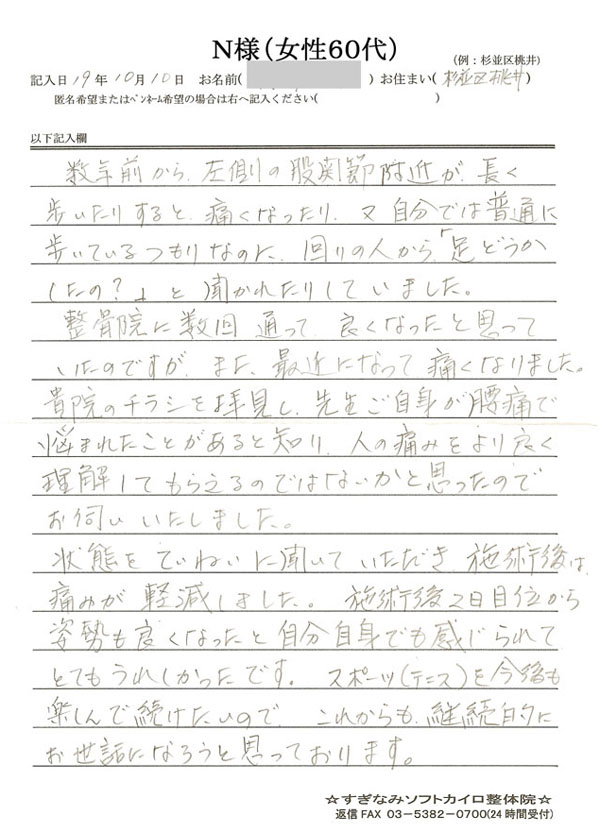 N様（女性60代）
（例：杉並区桃井）
記入日 19年10月10日 お名前（　　　）お住まい（杉並区桃井）
匿名希望またはペンネーム希望の場合は右へ記入ください（　　　）
以下記入欄
数年前から、左側の股関節附近が、長く
歩いたりすると、痛くなったり、又 自分では普通に
歩いているつもりなのに、回りの人から、「足どうか
したの？」と聞かれたりしていました。
整骨院に数回 通って、良くなったと思って
いたのですが、また、最近になって痛くなりました。
貴院のチラシを拝見し、先生ご自身が腰痛で
悩まれたことがあると知り、人の痛みをより良く
理解してもらえるのではないかと思ったので
お伺いいたしました。
状態をていねいに聞いていただき、施術後は、
痛みが軽減しました。施術後2日目位から
姿勢も良くなったと自分自身でも感じられて
とてもうれしかったです。スポーツ（テニス）を今後も
楽しんで続けたいので、これからも、継続的に
お世話になろうと思っております。
☆すぎなみソフトカイロ整体院☆
返信FAX 03-5382-0700(24時間受付)